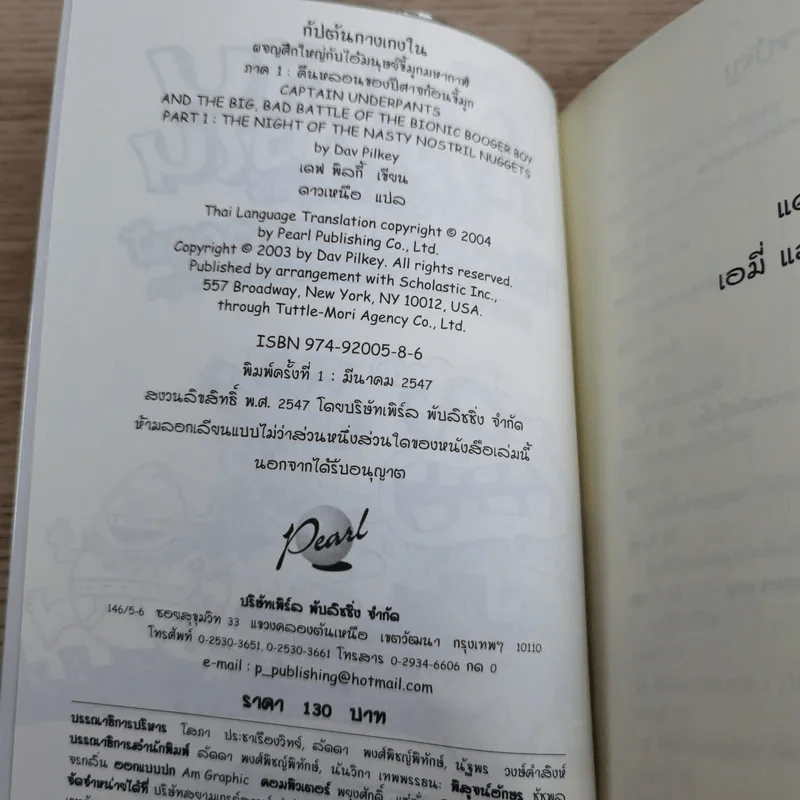 กัปตันกางเกงใน
ผจญศึกใหญ่กับไอ้มนุษย์ขี้มูกมหากาฬ
ภาค 1 : คืนหลอนของปีศาจก้อนขี้มูก
CAPTAIN UNDERPANTS
AND THE BIG, BAD BATTLE OF THE BIONIC BOOGER BOY
PART 1 : THE NIGHT OF THE NASTY NOSTRIL NUGGETS
by Dav Pilkey
เดฟ พิลกี้ เขียน
ดาวเหนือ แปล
Thai Language Translation copyright © 2004
by Pearl Publishing Co., Ltd.
Copyright © 2003 by Dav Pilkey. All rights reserved.
Published by arrangement with Scholastic Inc.,
557 Broadway, New York, NY 10012, USA.
through Tuttle-Mori Agency Co., Ltd.
ISBN 974-92005-8-6
พิมพ์ครั้งที่ 1 : มีนาคม 2547
สงวนลิขสิทธิ์ พ.ศ. 2547 โดยบริษัทเพิร์ล พับลิชชิ่ง จำกัด
ห้ามลอกเลียนแบบไม่ว่าส่วนหนึ่งส่วนใดของหนังสือเล่มนี้
นอกจากได้รับอนุญาต
Pearl
บริษัทเพิร์ล พับลิชชิ่ง จำกัด
146/5-6 ซอยสุขุมวิท 33 แขวงคลองตันเหนือ เขตวัฒนา กรุงเทพฯ 10110
โทรศัพท์ 0-2530-3651, 0-2530-3661 โทรสาร 0-2934-6606 กด 0
e-mail : p_publishing@hotmail.com
ราคา 130 บาท
บรรณาธิการบริหาร โสภา ประชาเรืองวิทย์, ลัดดา พงศ์พิชญ์พิทักษ์, นัฐพร วงษ์ดำสิงห์
บรรณาธิการสำนักพิมพ์ ลัดดา พงศ์พิชญ์พิทักษ์, นันวิกา เทพพรรธนะ พิสูจน์อักษร ชัชพล
จรกลั่น ออกแบบปก Am Graphic คอมพิวเตอร์ พยุงศักดิ์
จัดจำหน่ายได้ที่
เอมี่